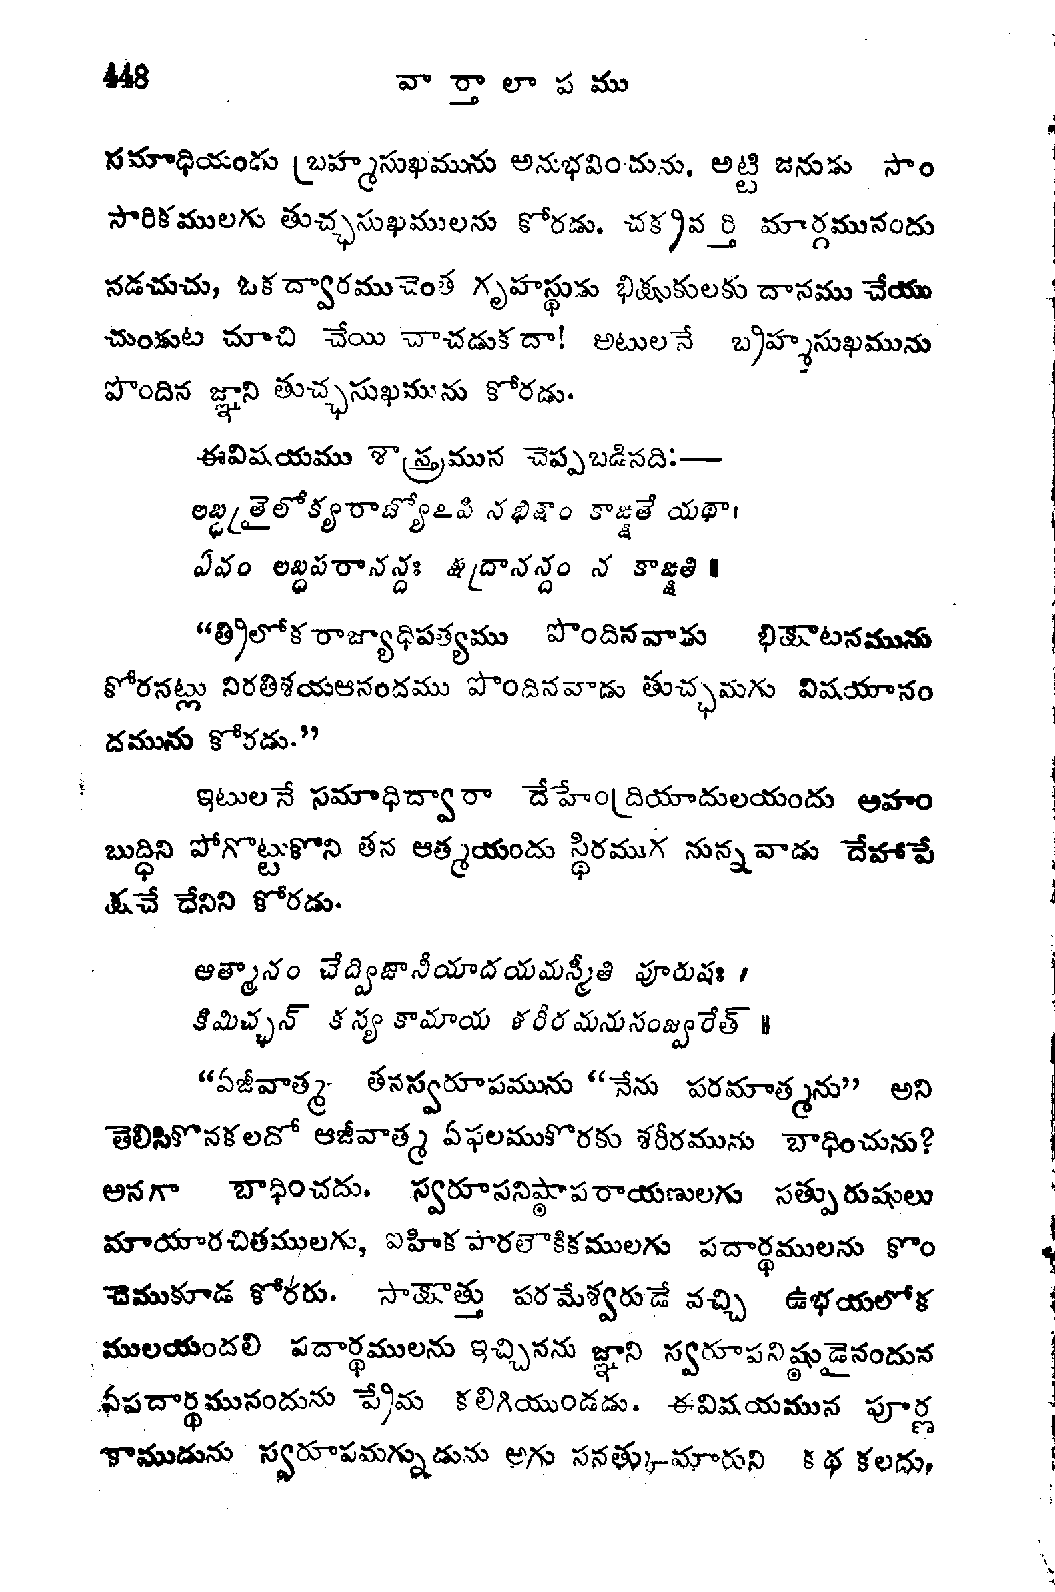 448 వార్తాలాపము
సమాధియందు బ్రహ్మసుఖమును అనుభవించును. అట్టి జనుడు సాం
సారికములగు తుచ్ఛసుఖములను కోరడు. చక్రవర్తి మార్గమునందు
నడచుచు, ఒకద్వారముచెంత గృహస్థుడు భిక్షుకులకు దానము చేయు
చుండుట చూచి చేయి చాచడుకదా! అటులనే బ్రహ్మసుఖమును
పొందిన జ్ఞాని తుచ్ఛసుఖమును కోరడు.
ఈవిషయము శాస్త్రమున చెప్పబడినది:—
లబ్ధత్రైలోక్యరాజ్యోఽపి నభిక్షాం కాఙ్క్షతే యథా।
ఏవం లబ్ధపరానన్దః క్షుద్రానన్దం న కాఙ్క్షతి॥
“త్రిలోకరాజ్యాధిపత్యము పొందినవాడు భిక్షాటనమును
కోరనట్లు నిరతిశయఆనందము పొందినవాడు తుచ్ఛమగు విషయానం
దమును కోరడు.”
ఇటులనే సమాధిద్వారా దేహేంద్రియాదులయందు అహం
బుద్ధిని పోగొట్టుకొని తన ఆత్మయందు స్థిరముగ నున్నవాడు దేహాపే
క్షచే దేనిని కోరడు.
ఆత్మానం చేద్విజానీయాదయమస్మీతి పూరుషః।
కిమిచ్ఛన్ కస్య కామాయ శరీరమనుసంజ్వరేత్॥
“ఏజీవాత్మ తనస్వరూపమును “నేను పరమాత్మను” అని
తెలిసికొనకలదో ఆజీవాత్మ ఏఫలముకొరకు శరీరమును బాధించును?
అనగా బాధించదు. స్వరూపనిష్ఠాపరాయణులగు సత్పురుషులు
మాయారచితములగు, ఐహికపారలౌకికములగు పదార్థములను కొం
చెముకూడ కోరరు. సాక్షాత్తు పరమేశ్వరుడే వచ్చి ఉభయలోక
ములయందలి పదార్థములను ఇచ్చినను జ్ఞాని స్వరూపనిష్ఠుడైనందున
ఏపదార్థమునందును ప్రేమ కలిగియుండడు. ఈవిషయమున పూర్ణ
కాముడును స్వరూపమగ్నుడును అగు సనత్కుమారుని కథ కలదు,